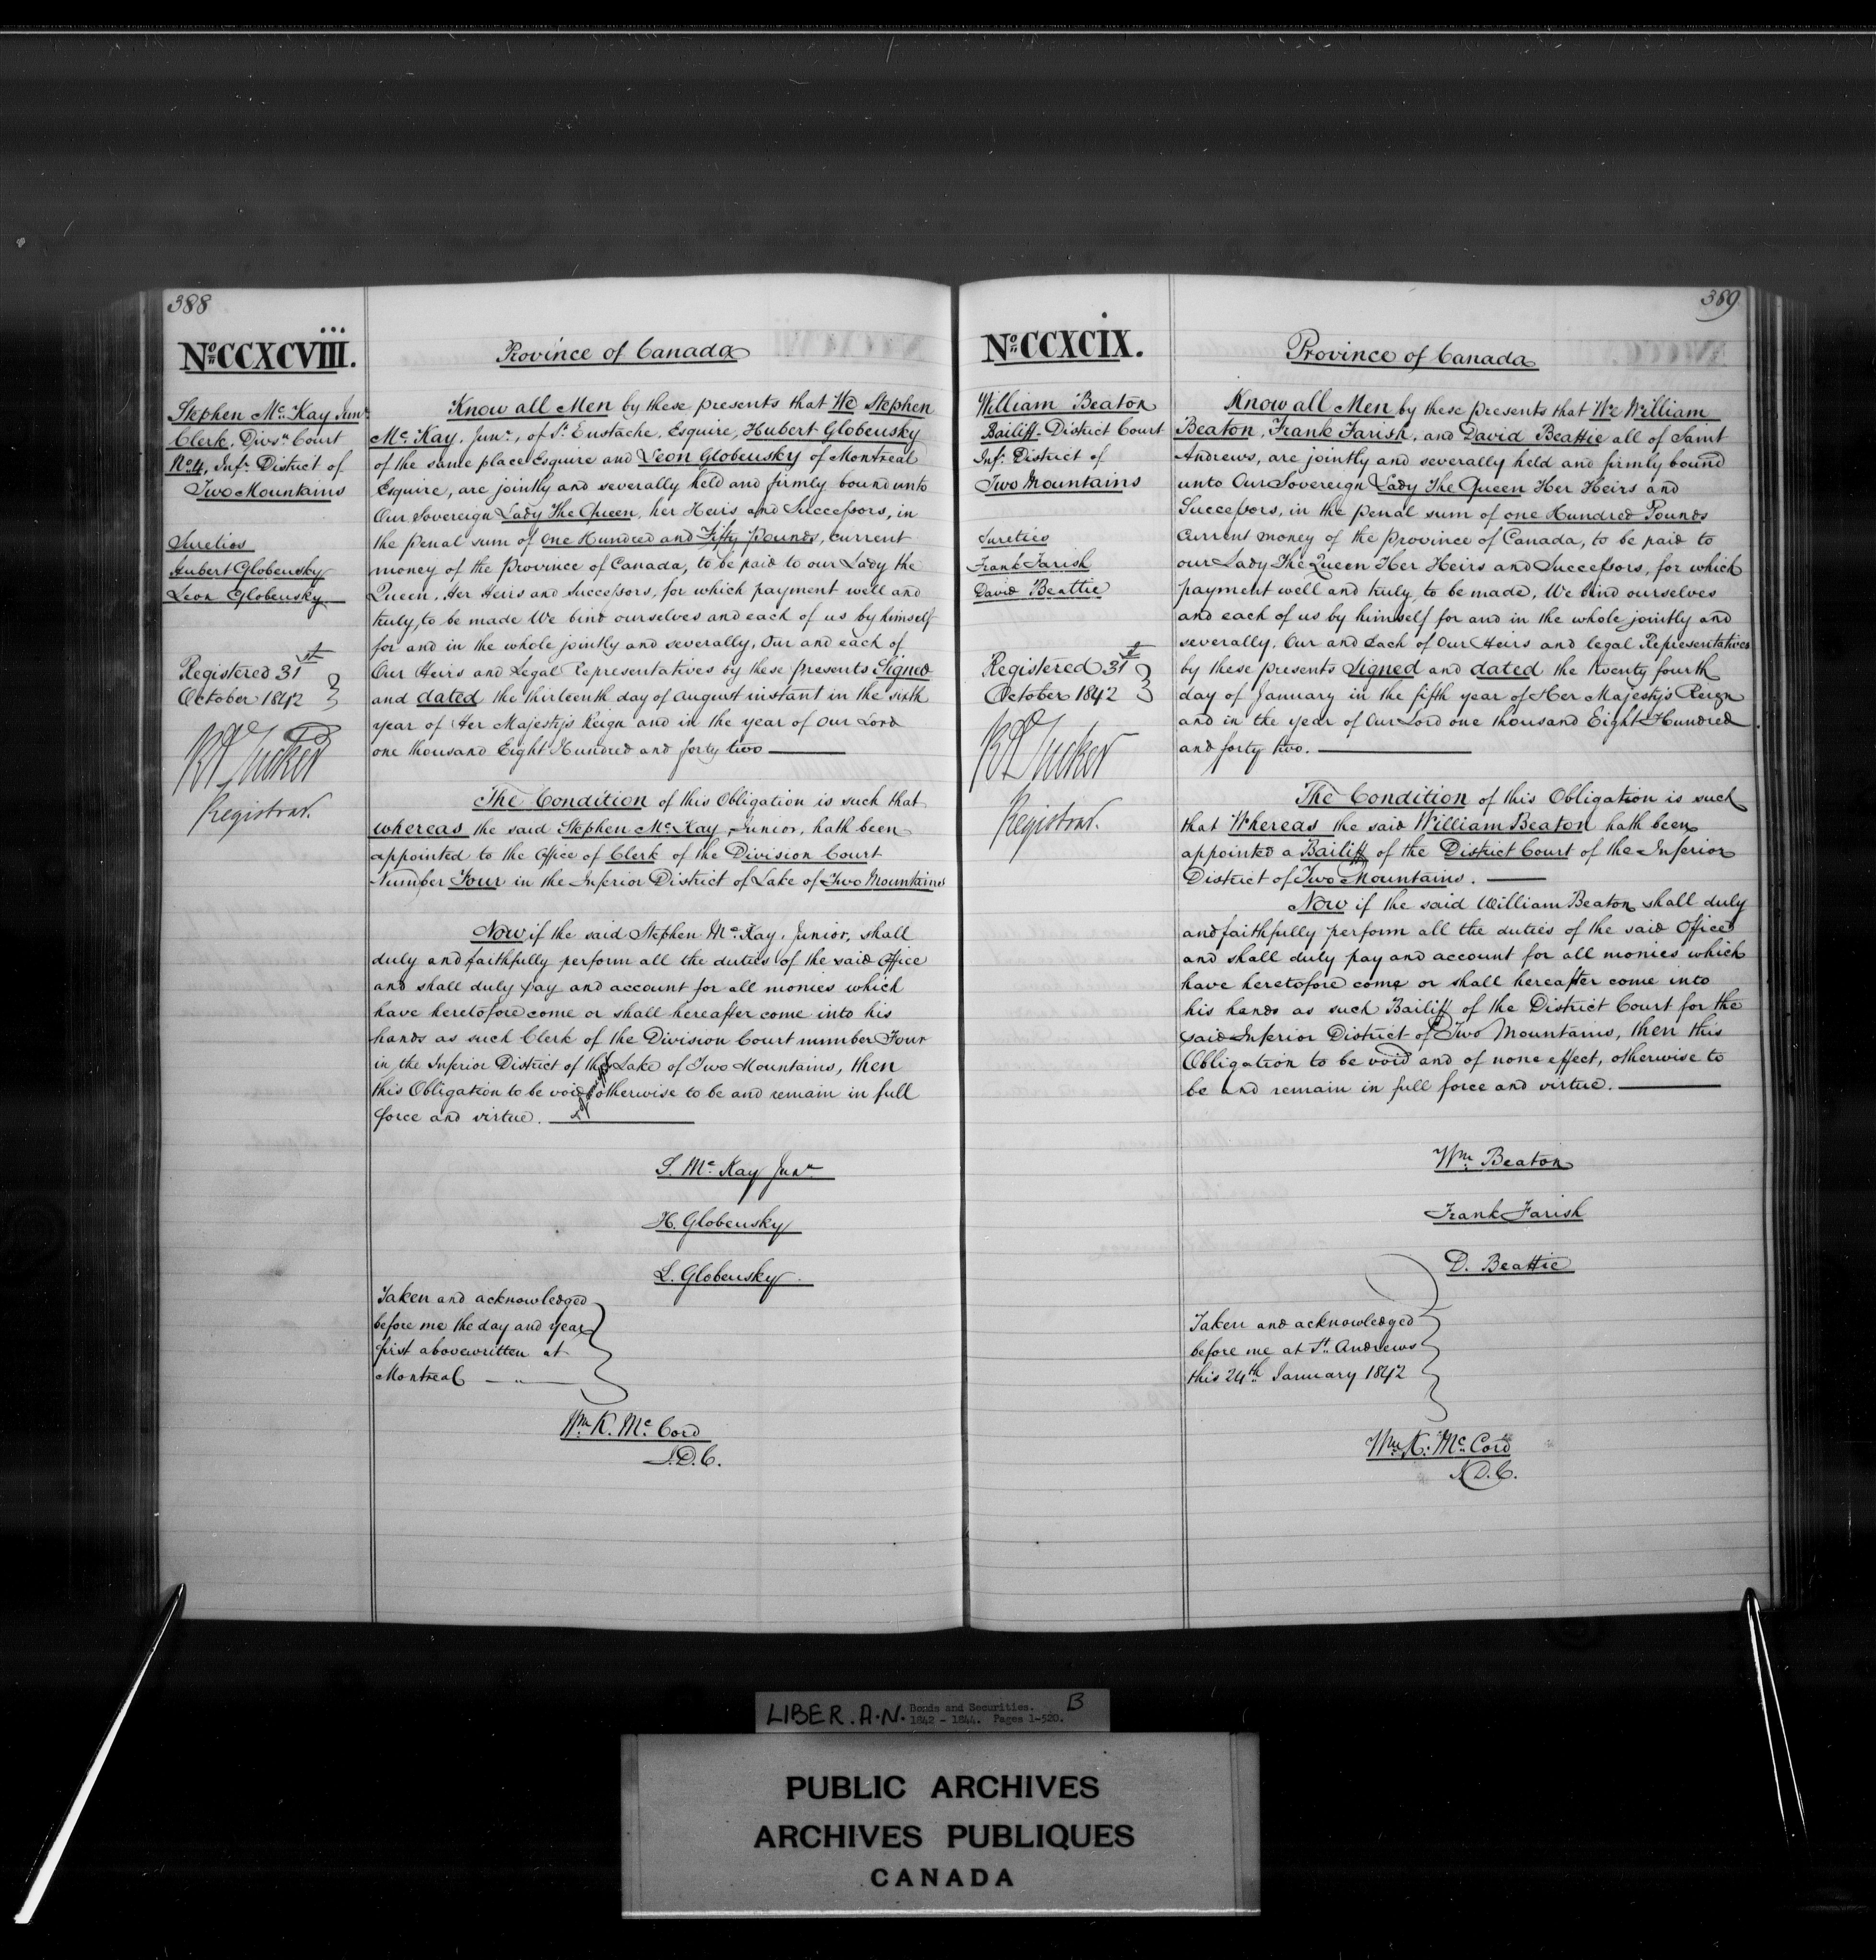 388
No CCXCVIII.
Stephen Mc Kay Junr
Clerk, Divsn Court
No 4, Infr District of
Two Mountains
Sureties
Hubert Globensky
Leon Globensky
Registered 31st
October 1842
R A Tucker
Registrar.
Province of Canada
Know all Men by these presents that We Stephen
Mc Kay, Junr, of St Eustache, Esquire, Hubert Globensky
of the same place Esquire and Leon Globensky of Montreal
Esquire, are jointly and severally held and firmly bound unto
Our Sovereign Lady The Queen, her Heirs and Successors, in
the penal sum of One Hundred and Fifty Pounds, current
money of the Province of Canada, to be paid to our Lady the
Queen, Her Heirs and Successors, for which payment well and
truly, to be made We bind ourselves and each of us by himself
for and in the whole jointly and severally, Our and each of
Our Heirs and Legal Representatives by these presents Signed
and dated the thirteenth day of August instant in the sixth
year of Her Majesty's Reign and in the year of Our Lord
one thousand Eight Hundred and forty two
The Condition of this Obligation is such that
whereas the said Stephen Mc Kay, Junior, hath been
appointed to the Office of Clerk of the Division Court
Number Four in the Inferior District of Lake of Two Mountains
Now if the said Stephen Mc Kay, Junior, shall
duly and faithfully perform all the duties of the said Office
and shall duly pay and account for all monies which
have heretofore come or shall hereafter come into his
hands as such Clerk of the Division Court number Four
in the Inferior District of the Lake of Two Mountains, then
this Obligation to be void otherwise to be and remain in full
force and virtue.
S. Mc Kay Junr
H. Globensky
L. Globensky
Taken and acknowledged
before me the day and year
first abovewritten at
Montreal
Wm K. Mc Cord
J.D.C.
389
No CCXCIX.
William Beaton
Bailiff District Court
Inf: District of
Two Mountains
Sureties
Frank Farish
David Beattie
Registered 31st
October 1842
R A Tucker
Registrar.
Province of Canada
Know all Men by these Presents that We William
Beaton, Frank Farish, and David Beattie all of Saint
Andrews, are jointly and severally held and firmly bound
unto Our Sovereign Lady The Queen Her Heirs and
Successors, in the penal sum of one Hundred Pounds
Current money of the Province of Canada, to be paid to
our Lady The Queen Her Heirs and Successors, for which
payment well and truly to be made, We bind ourselves
and each of us by himself for and in the whole jointly and
severally, Our and Each of Our Heirs and legal Representatives
by these presents Signed and dated the twenty fourth
day of January in the fifth year of Her Majesty's Reign
and in the year of Our Lord one thousand Eight Hundred
and forty two.
The Condition of this Obligation is such
that Whereas the said William Beaton hath been
appointed a Bailiff of the District Court of the Inferior
District of Two Mountains.
Now if the said William Beaton shall duly
and faithfully perform all the duties of the said Office
and shall duly pay and account for all monies which
have heretofore come or shall hereafter come into
his hands as such Bailiff of the District Court for the
said Inferior District of Two Mountains, then this
Obligation to be void and of none effect, otherwise to
be and remain in full force and virtue.
Wm Beaton
Frank Farish
D. Beattie
Taken and acknowledged
before me at St. Andrews
this 24th January 1842
Wm K. Mc Cord
J.D.C.
LIBER. A.N. Bonds and Securities. B
1842 - 1844. Pages 1-520.
PUBLIC ARCHIVES
ARCHIVES PUBLIQUES
CANADA